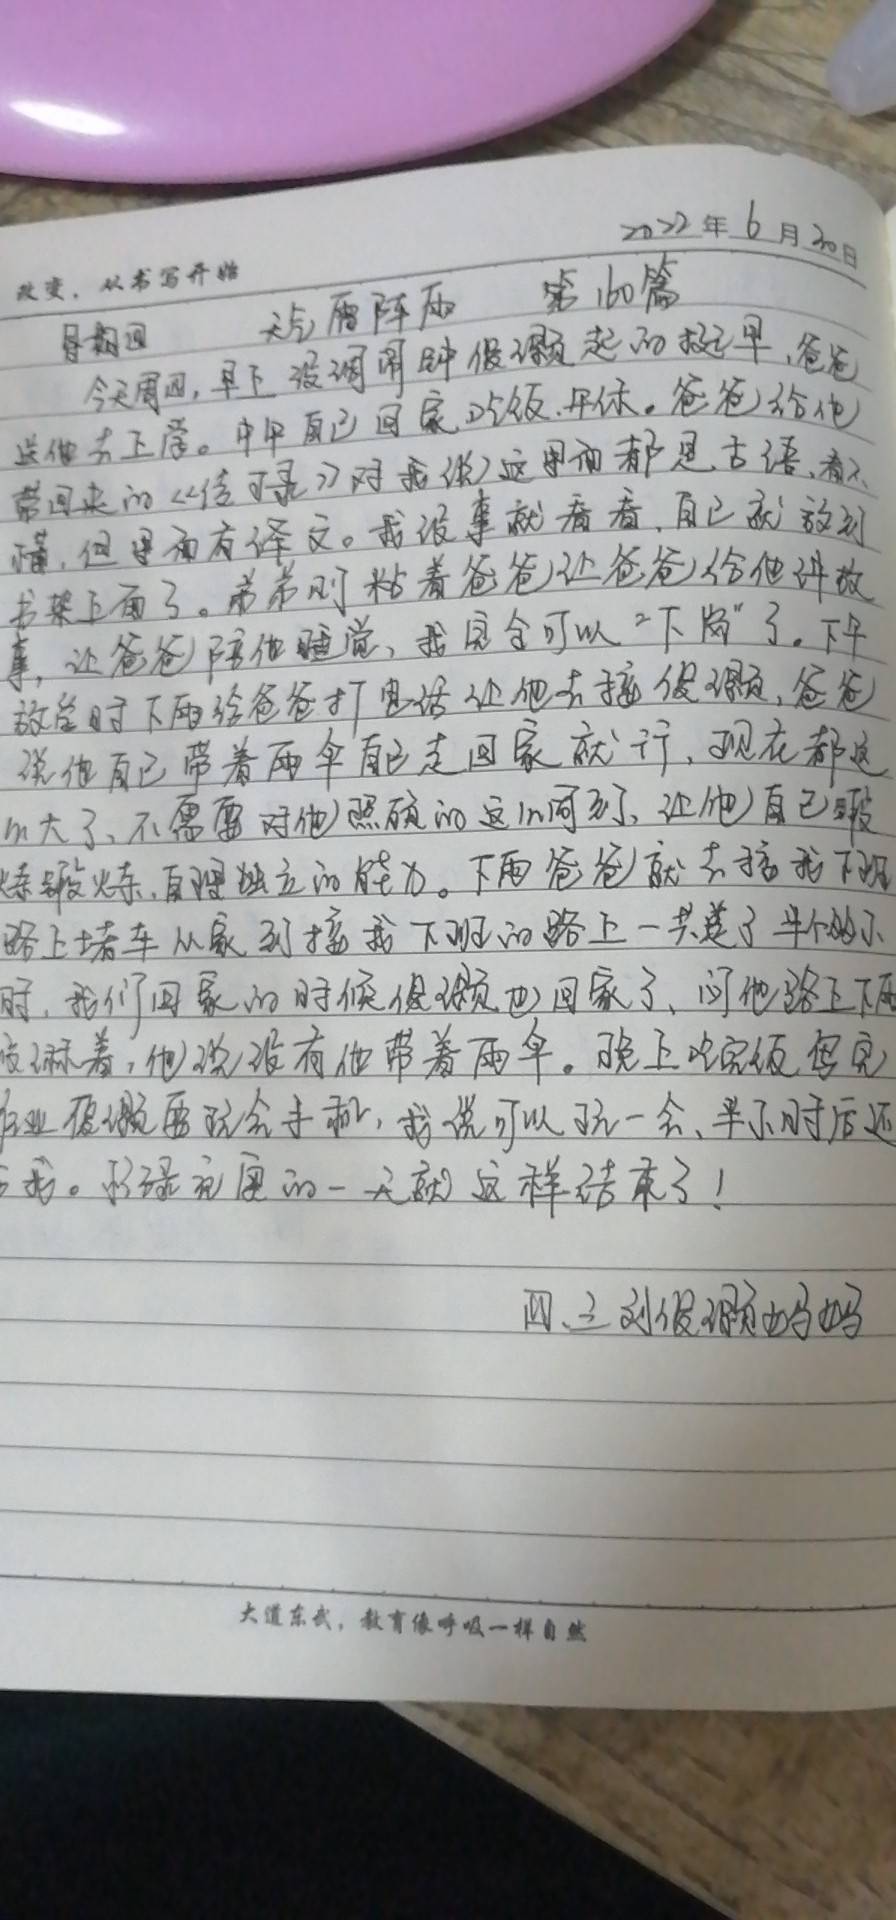 2022年6月30日
改变，从书写开始
星期四 天气 雷阵雨 第160篇
今天周四，早上没调闹钟俊颢起的挺早，爸爸
送他去上学。中午自己回家吃饭.午休。爸爸给他
带回来的《传习录》对我说这里面都是古语、看不
懂，但里面有译文。我没事就看看，自己就放到
书架上面了。弟弟则粘着爸爸让爸爸给他讲故
事，让爸爸陪他睡觉，我完全可以“下岗”了。下午
放学时下雨给爸爸打电话让他去接俊颢，爸爸
说他自己带着雨伞自己走回家就行，现在都这
么大了、不需要对他照顾的这么周到、让他自己锻
炼锻炼.自理独立的能力。下雨爸爸就去接我下班
路上堵车从家到接我下班的路上一共走了半个多小
时，我们回家的时候俊颢也回家了、问他路上下雨
淋着，他说没有他带着雨伞。晚上吃完饭写完
作业俊颢要玩会手机，我说可以玩一会、半小时后还
给我。忙碌充实的一天就这样结束了！
四.三刘俊颢妈妈
大道东武，教育像呼吸一样自然